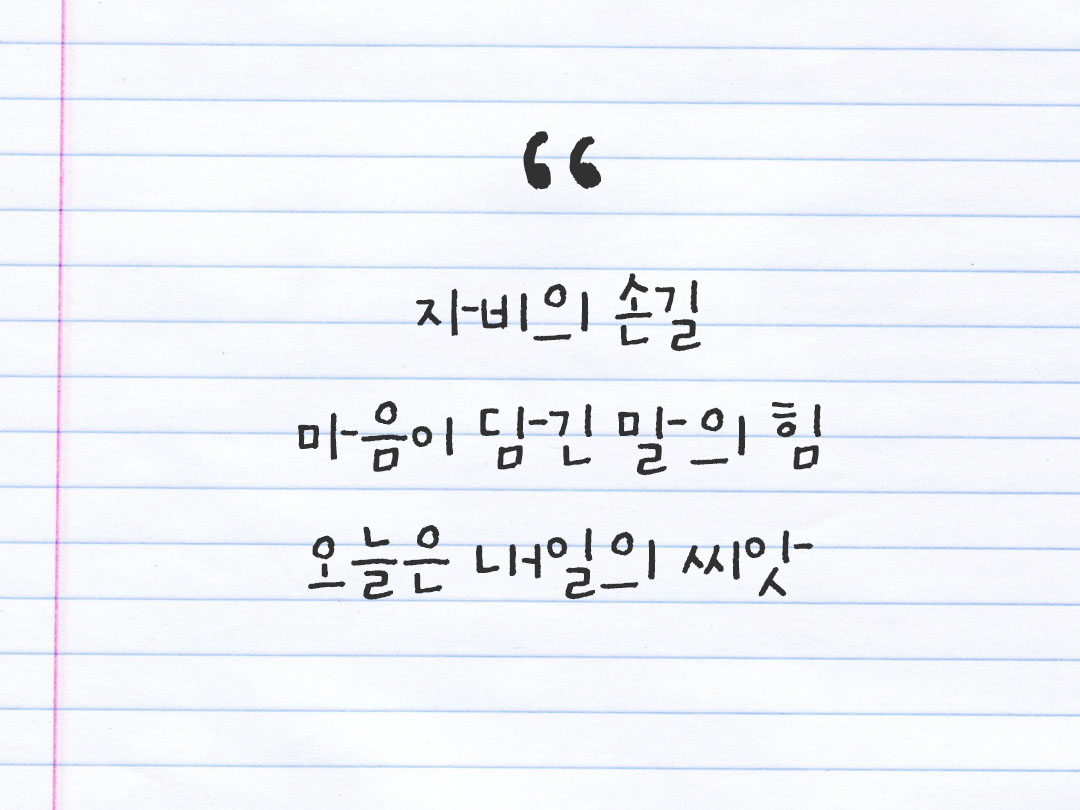 “
자비의 손길
마음이 담긴 말의 힘
오늘은 내일의 씨앗